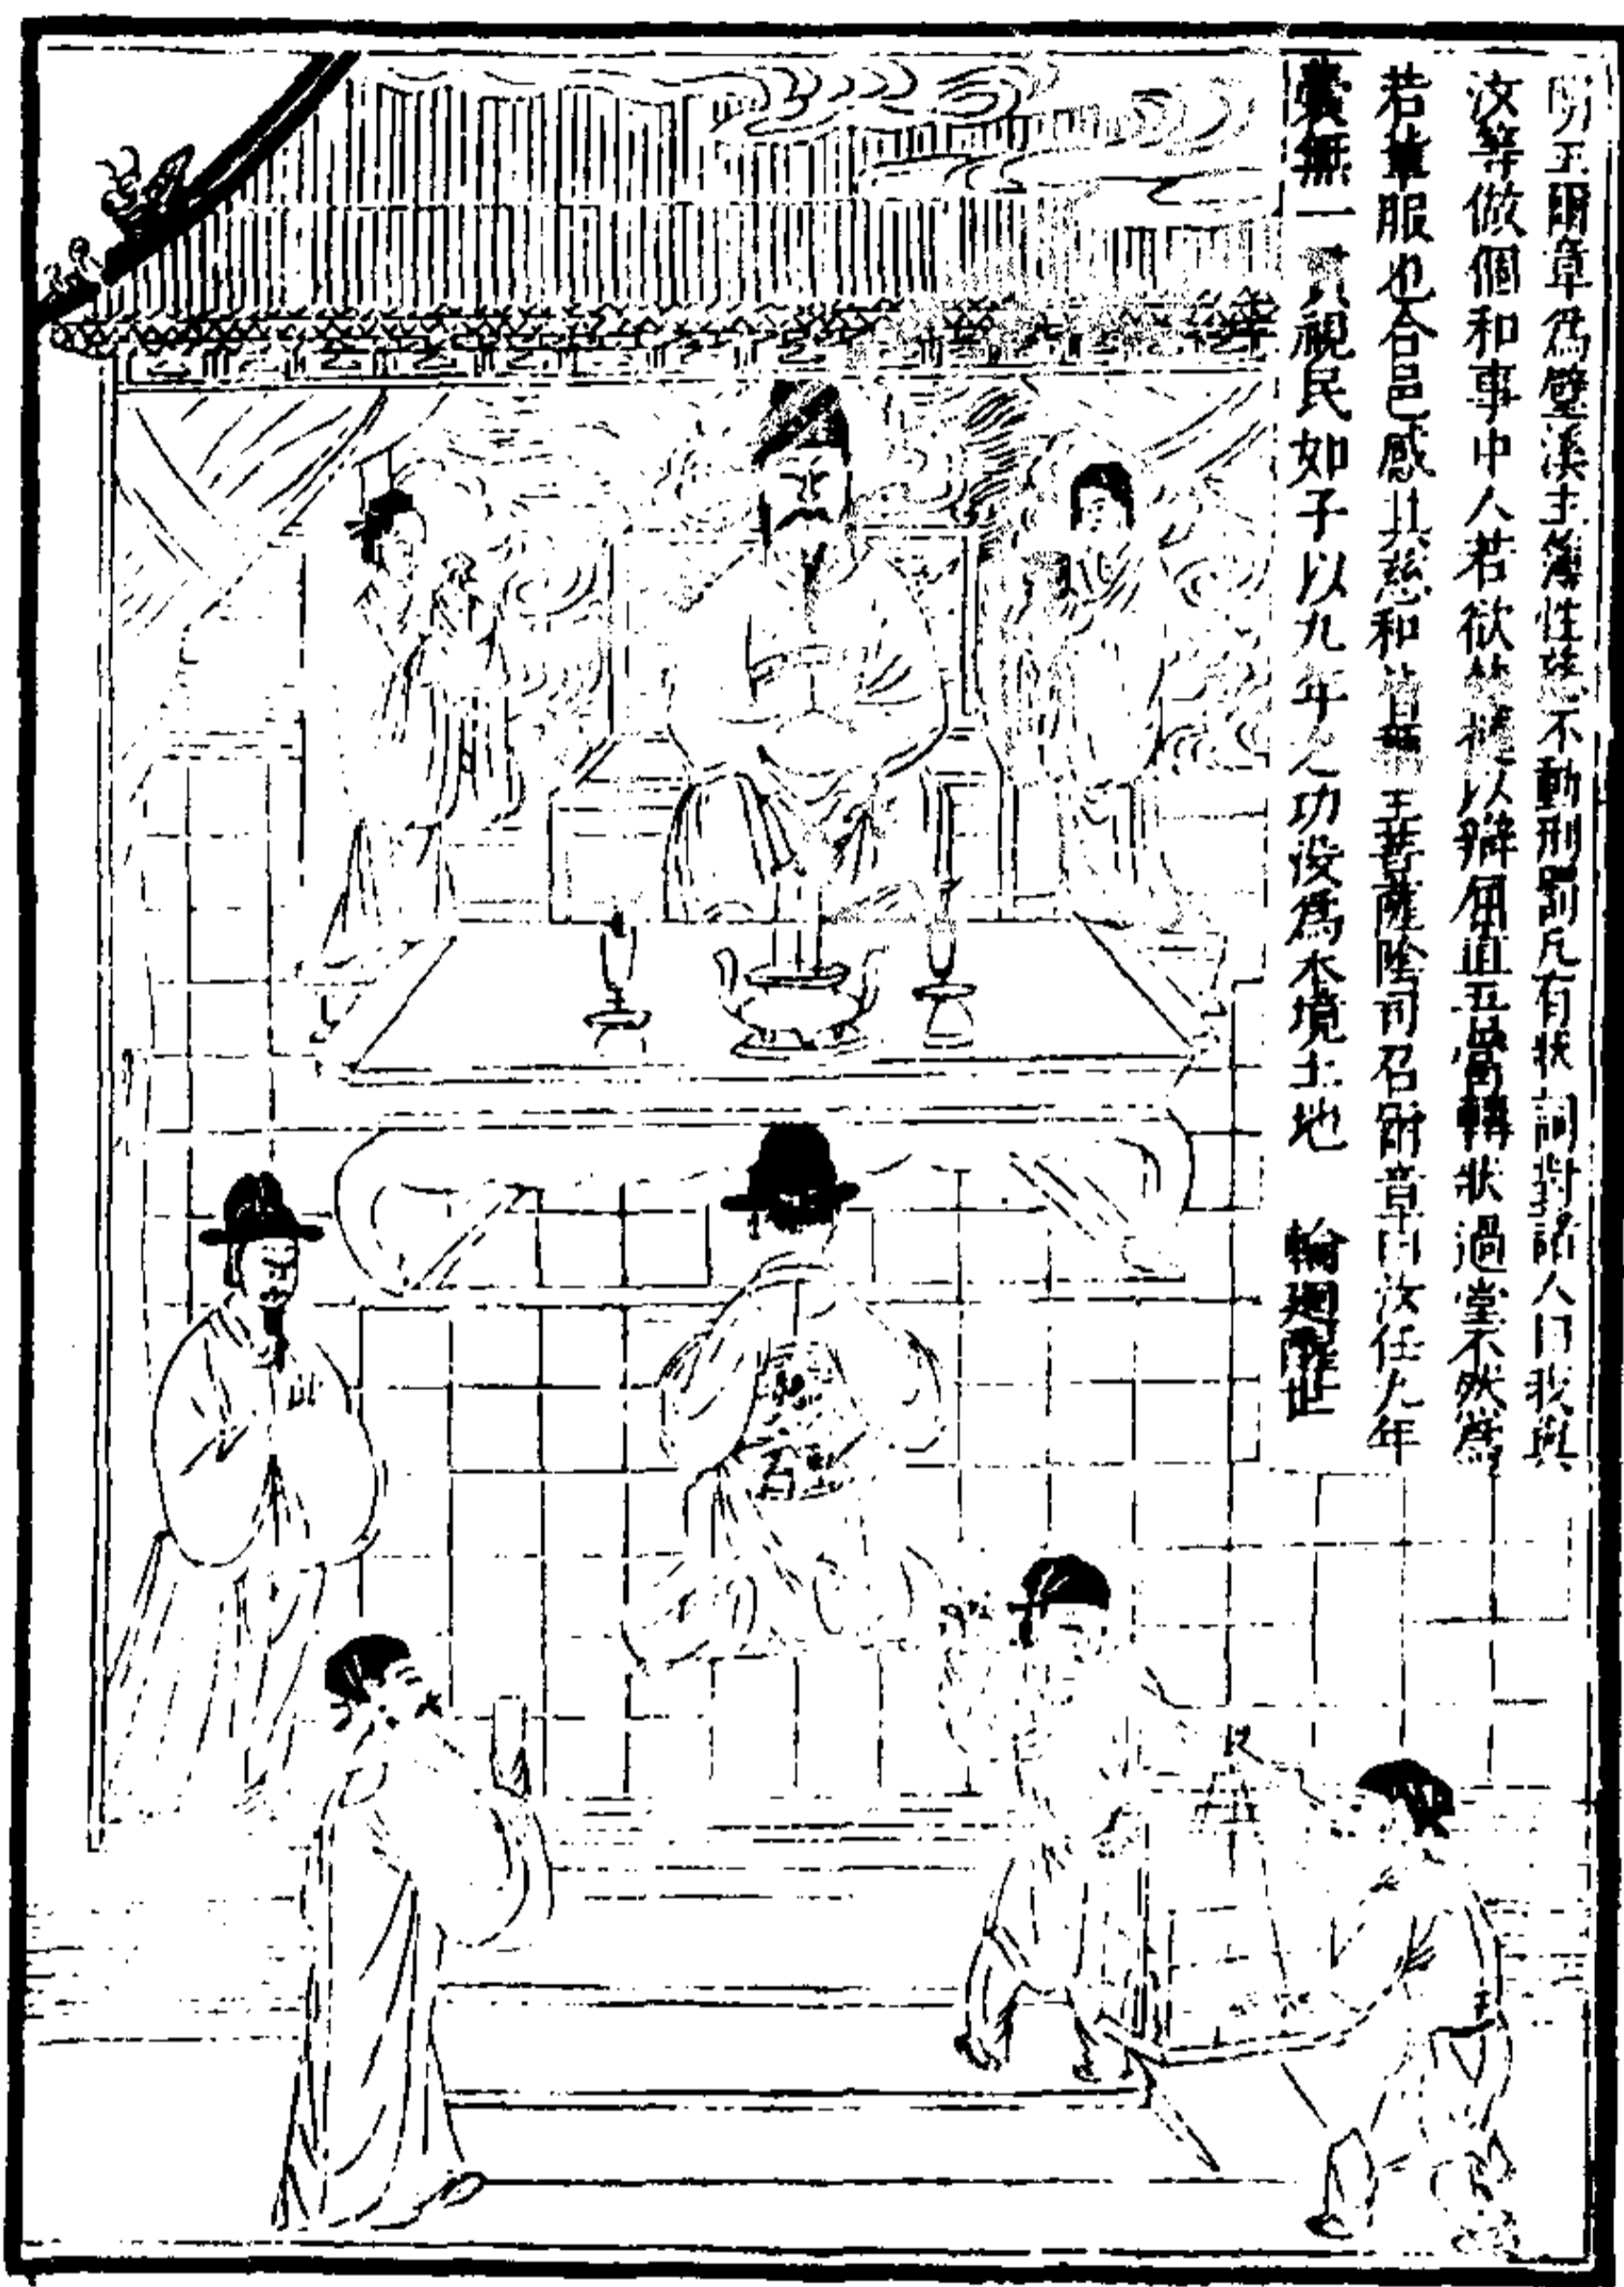 明王爾章為璧溪主簿性慈不動刑罰凡有狀詞對諸人曰我與
汝等做個和事中人若欲以辯屈直五當轉狀過堂不然為
若輩服也合邑感其慈和皆王菩薩陰司召爾章曰汝任九年
囊無一真視民如子以九年之功沒為本境土地 輪廻醒世